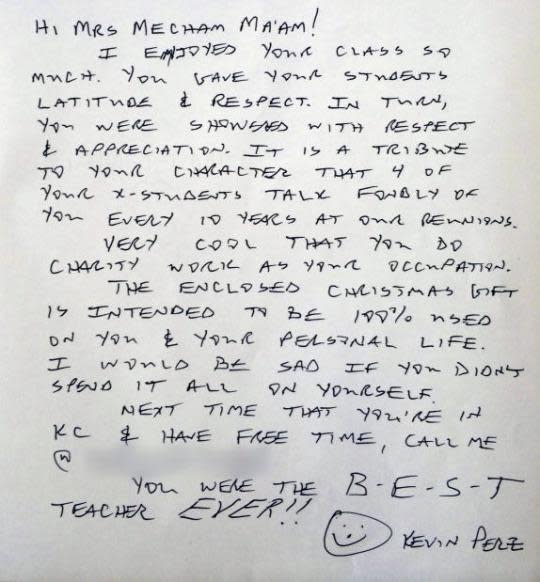 Hi Mrs Mecham Ma'am!
I enjoyed your class so
much. You gave your students
latitude & respect. In turn,
you were showered with respect
& appreciation. It is a tribute
to your character that 4 of
your x-students talk fondly of
you every 10 years at our reunions.
Very cool that you do
charity work as your occupation.
The enclosed Christmas gift
is intended to be 100% used
on you & your personal life.
I would be sad if you didn't
spend it all on yourself.
Next time that you're in
KC & have free time, call me
@
You were the B-E-S-T
teacher EVER!!
Kevin Perz